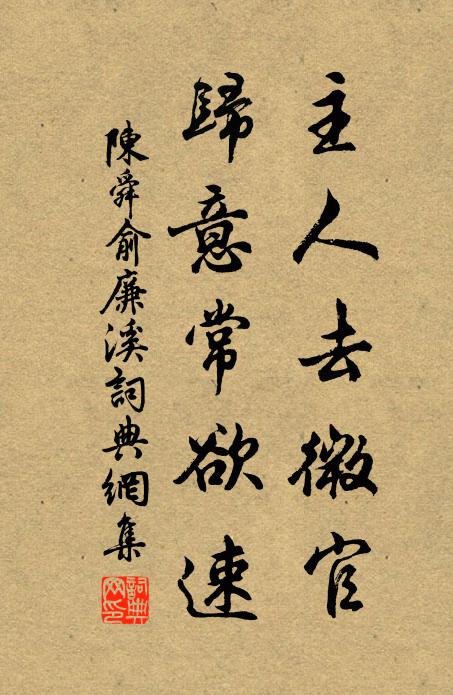 主人去微官
歸意常欲速
陳舜俞廉溪詞典網集
詞典网印